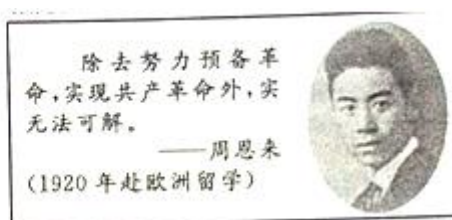 除去努力预备革
命,实现共产革命外,实
无法可解。
——周恩来
(1920年赴欧洲留学)